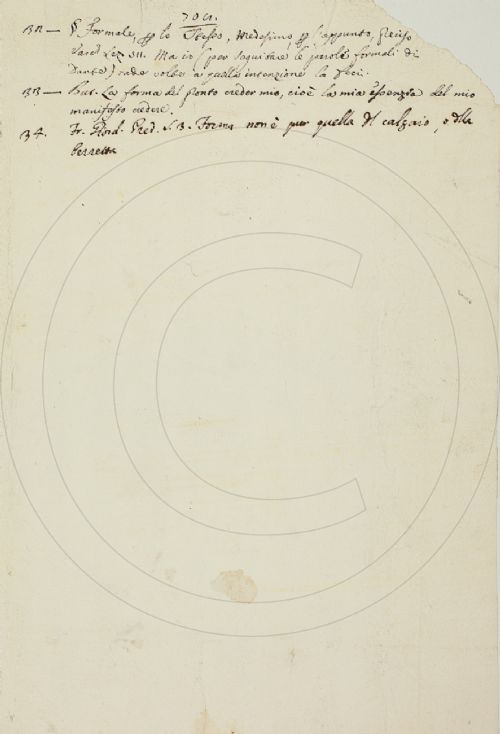 § Formale, per lo Stesso, Medesimo, per l'appunto, preciso
Varch. Lez. 511. Ma io (per seguitare le parole formali di
Dante) rade volte a quella intenzione la feci.
But. La forma del pronto creder mio, cioè la mia essenzia del mio
manifesto credere.
34. Fr. Giord. Pred. S. 3. Forma non è pur quella del calzaio, o della
berretta